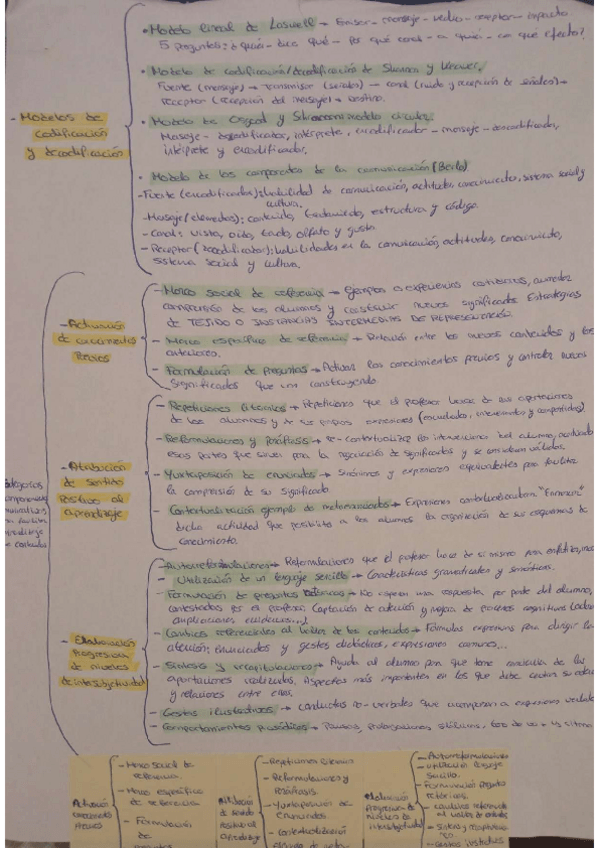 • Modelo lineal de Laswell → Emisor - mensaje - medio - receptor - impacto
5 preguntas: ¿quién - dice qué - por qué canal - a quién - con qué efecto?
• Modelo de codificación/decodificación de Shannon y Weaver:
Fuente (mensaje) → transmisor (señales) → canal (ruido y recepción de señales) →
receptor (recepción del mensaje) → destino.
- Modelos de
codificación
y decodificación
• Modelo de Osgood y Schramm: modelo circular:
Mensaje - decodificador, intérprete, encodificador - mensaje - descodificador,
intérprete y encodificador.
• Modelo de los componentes de la comunicación (Berlo)
- Fuente (encodificador): habilidad de comunicación, actitudes, conocimiento, sistema social y
cultura.
- Mensaje (elementos): contenido, tratamiento, estructura y código.
- Canal: vista, oído, tacto, olfato y gusto
- Receptor (decodificador): habilidades en la comunicación, actitudes, conocimiento,
sistema social y cultura.
- Activación
de conocimientos
Previos
- Marco social de referencia → Ejemplos o experiencias cotidianas, aumentar
comprensión de los alumnos y construir nuevos significados. Estrategias
de TEJIDO O SUSTANCIAS INTERMEDIAS DE REPRESENTACIÓN.
- Marco específico de referencia → Relación entre los nuevos contenidos y los
anteriores.
- Formulación de preguntas → Activar los conocimientos previos y controlar nuevos
significados que van construyendo
- Atribución
de sentido
Positivo al
aprendizaje
- Repeticiones literales → Repeticiones que el profesor hace de las aportaciones
de los alumnos y de sus propias expresiones
- Reformulaciones y paráfrasis → re-contextualizar las intervenciones del alumno,
esas partes que sirven para la negociación de significados y se consideran válidas.
- Yuxtaposición de enunciados → Sinónimos y expresiones equivalentes para facilitar
la comprensión de su significado
- Contextualización ejemplo de metaenunciados → Expresiones
dicha actividad que posibilita a los alumnos la organización de sus esquemas de
conocimiento.
- Elaboración
Progresiva
de niveles
de intersubjetividad
- Autorreformulaciones → Reformulaciones que el profesor hace de sí mismo para
- Utilización de un lenguaje sencillo → Características gramaticales y semánticas.
- Formulación de preguntas retóricas → No esperan una respuesta por parte del alumno,
contestadas por el profesor. Captación de atención y mejora de procesos cognitivos
ampliaciones, evidencias...)
- Cambios referenciales al valor de los contenidos → Fórmulas expresivas para dirigir la
atención; enunciados y gestos didácticos, expresiones comunes...
- Síntesis y recapitulaciones → Ayuda al alumno para que tome conciencia de las
aportaciones realizadas. Aspectos más importantes en los que debe centrar su
y relaciones entre ellos.
- Gestos ilustrativos → conductas no-verbales que acompañan a expresiones verbales
- Comportamientos prosódicos → Pausas, prolongaciones silábicas, tono de voz + y ritmo
Activación
conocimientos
Previos
- Marco social de
referencia.
- Marco específico
de referencia
- Formulación
de
Atribución
de sentido
Positivo al
aprendizaje
- Repeticiones literales
- Reformulaciones y
Paráfrasis.
- Yuxtaposición de
enunciados
- Contextualización
Elaboración
Progresiva de niveles
de intersubjetividad
- Autorreformulaciones
- Utilización lenguaje
Sencillo.
- Formulación preguntas
retóricas.
- Síntesis y
- Gestos ilustrativos